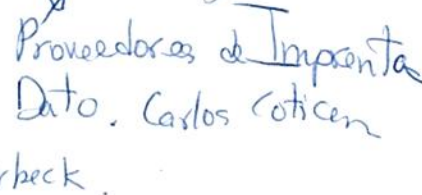 Proveedores de Imprenta
Dato. Carlos Coticen
check.